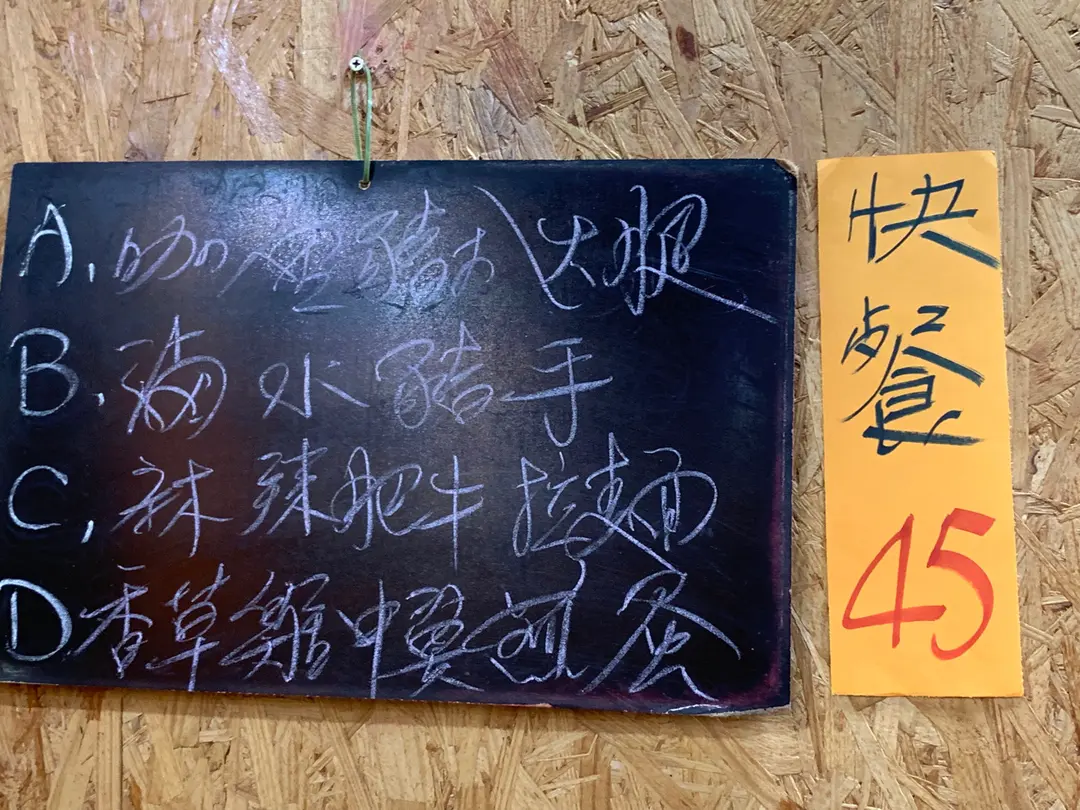 A. 咖哩豬扒火腿
B. 滷水豬手
C, 麻辣肥牛拉麵
D 香草雞中翼煎蛋
快
餐
45